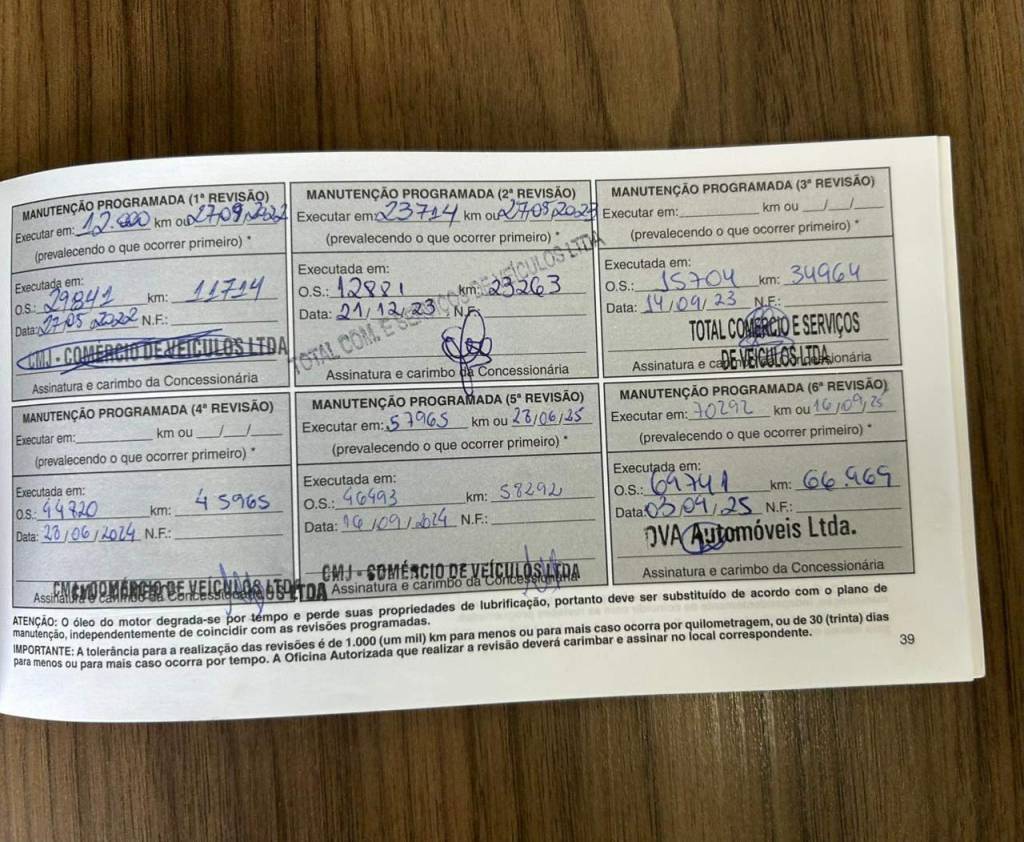 MANUTENÇÃO PROGRAMADA (1ª REVISÃO)
Executar em: 12.000 km ou 27/09/2022
(prevalecendo o que ocorrer primeiro) *
Executada em:
O.S.: 29841 km: 11714
Data: 27/05/2022 N.F.:
CMJ - COMÉRCIO DE VEÍCULOS LTDA
Assinatura e carimbo da Concessionária
MANUTENÇÃO PROGRAMADA (2ª REVISÃO)
Executar em: 23714 km ou 27/05/2023
(prevalecendo o que ocorrer primeiro) *
Executada em:
O.S.: 12881 km: 23263
Data: 21/12/23 N.F.:
TOTAL COM. E SERVIÇOS DE VEÍCULOS LTDA
Assinatura e carimbo da Concessionária
MANUTENÇÃO PROGRAMADA (3ª REVISÃO)
Executar em: km ou / /
(prevalecendo o que ocorrer primeiro) *
Executada em:
O.S.: 15704 km: 34964
Data: 14/09/23 N.F.:
TOTAL COMÉRCIO E SERVIÇOS
DE VEÍCULOS LTDA
Assinatura e carimbo da Concessionária
MANUTENÇÃO PROGRAMADA (4ª REVISÃO)
Executar em: km ou / /
(prevalecendo o que ocorrer primeiro) *
Executada em:
O.S.: 44820 km: 45965
Data: 28/06/2024 N.F.:
CMJ COMÉRCIO DE VEÍCULOS LTDA
Assinatura e carimbo da Concessionária
MANUTENÇÃO PROGRAMADA (5ª REVISÃO)
Executar em: 57965 km ou 28/06/25
(prevalecendo o que ocorrer primeiro) *
Executada em:
O.S.: 46493 km: 58292
Data: 16/09/2024 N.F.:
CMJ - COMÉRCIO DE VEÍCULOS LTDA
Assinatura e carimbo da Concessionária
MANUTENÇÃO PROGRAMADA (6ª REVISÃO)
Executar em: 70292 km ou 16/09/25
(prevalecendo o que ocorrer primeiro) *
Executada em:
O.S.: 69741 km: 66.969
Data: 03/04/25 N.F.:
DVA Automóveis Ltda.
Assinatura e carimbo da Concessionária
ATENÇÃO: O óleo do motor degrada-se por tempo e perde suas propriedades de lubrificação, portanto deve ser substituído de acordo com o plano de
manutenção, independentemente de coincidir com as revisões programadas.
IMPORTANTE: A tolerância para a realização das revisões é de 1.000 (um mil) km para menos ou para mais caso ocorra por quilometragem, ou de 30 (trinta) dias
para menos ou para mais caso ocorra por tempo. A Oficina Autorizada que realizar a revisão deverá carimbar e assinar no local correspondente.
39